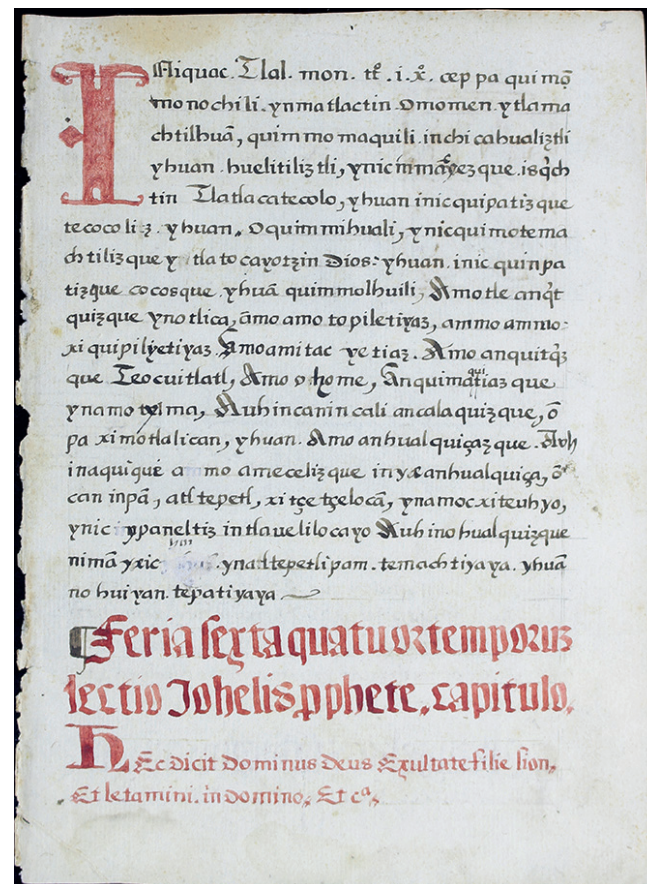 5
INiquac. Tlal. mon. tt̃. i. x̃. cep pa qui mo᷉
mo nochili. yn matlactin. omomen. ytlama
chtilhuā, quim mo maquili. in chi cahualiztli
yhuan. huelitiliztli, ynic
tin Tlatlacatecolo, yhuan inic quipatizque
te coco liz. yhuan. oquim mihuali, ynic quimotema
chtilizque y tlatocayotzin Dios: yhuan. inic quinpa
tizque cocosque. yhuā quimmolhuili, Amotle anq̃t
quizque ynotlica, āmo amo topiletiyaz, ammo ammo-
xi quipilyetiyaz. Amo ami tac yetiaz. Amo anquitq̃z
que Teocuitlatl, Amo ohome, Anquimatiaz que
qui
ynamo ma, Auh in canin cali ancalaquizque, ō
pa ximotlalican, yhuan. Amo anhualquiçazque. Auh
inaquique ammo amecelizque in anhualquiça, ō
can inpā, altepetl, xi tçetçelocā, ynamocxiteuhyo,
ynic ypaneltiz intlavelilocayo Auh ino hualquizque
nimā yxic ynaltepetlipam. temachtiyaya. yhuā
no huiyan. tepatiyaya
¶ Feria sexta quatuor temporuz
lectio Johelis p̱phete. capitulo.
HEc dicit dominus deus Exultate filie sion,
Et letamini. in domino, Et cᵃ,